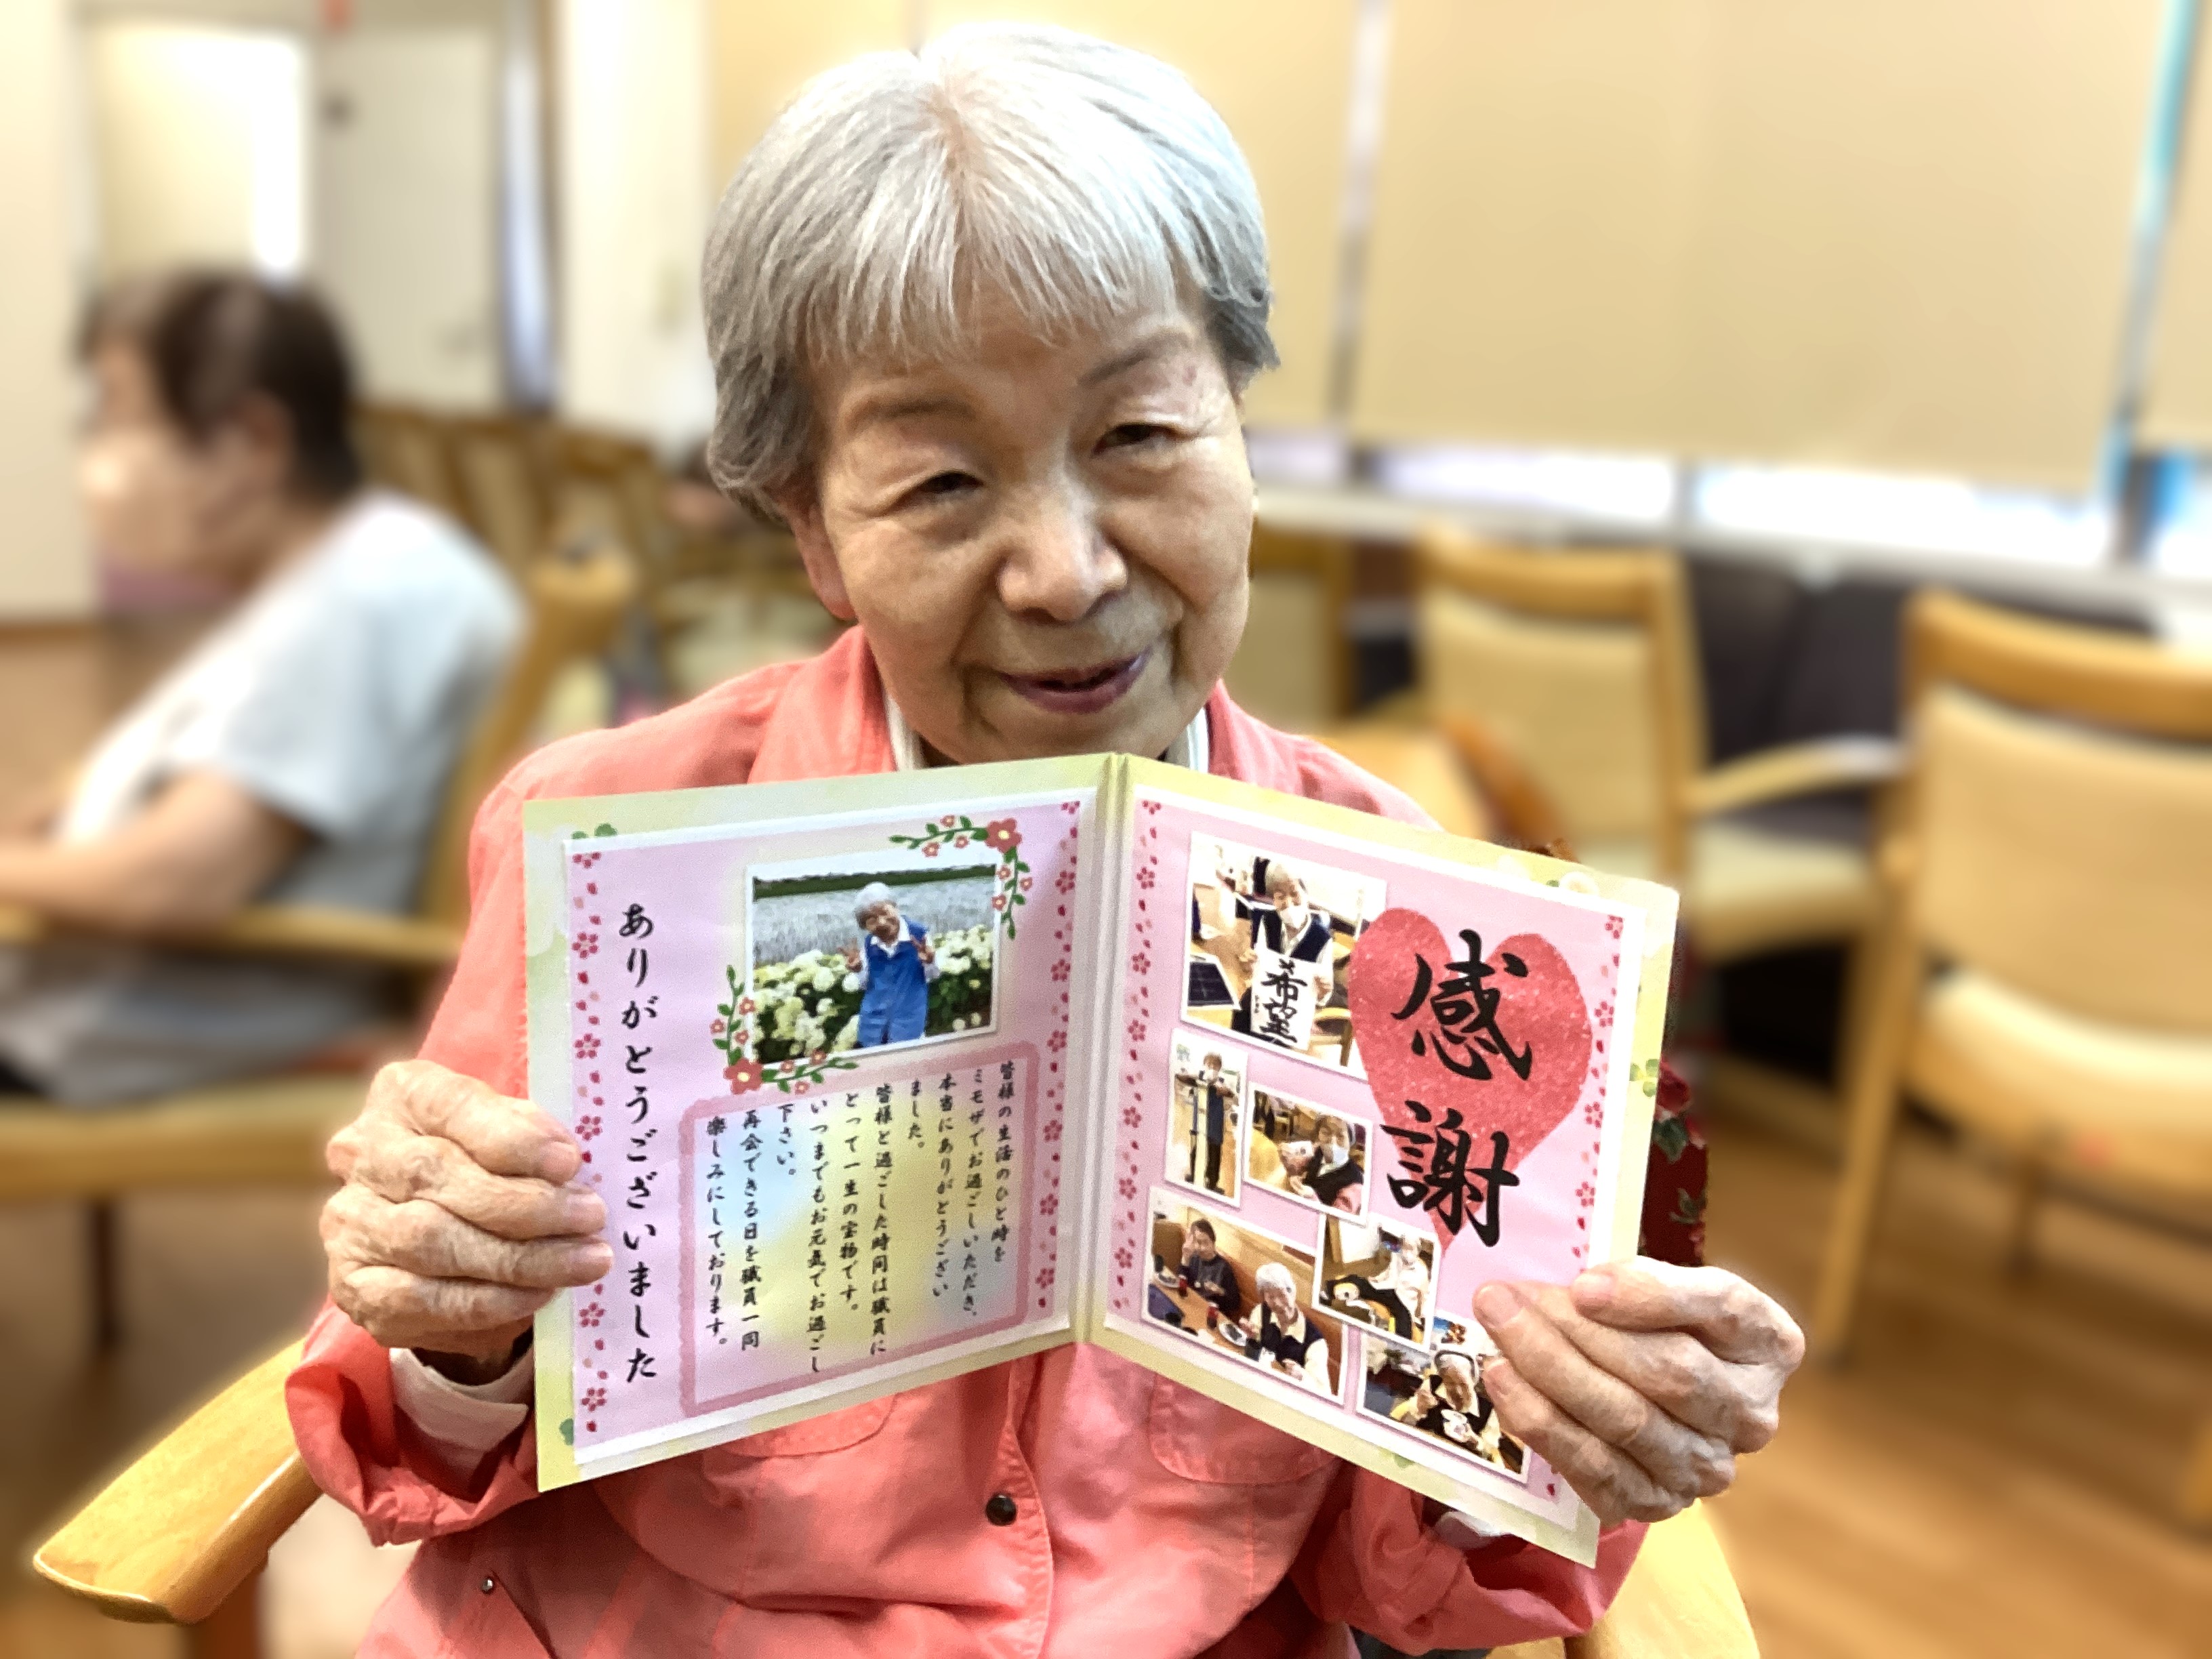 感謝
希望
ありがとうございました
皆様の生活のひと時を
ミモザでお過ごしいただき、
本当にありがとうござい
ました。
皆様と過ごした時間は職員に
とって一生の宝物です。
いつまでもお元気でお過ごし
下さい。
再会できる日を職員一同
楽しみにしております。